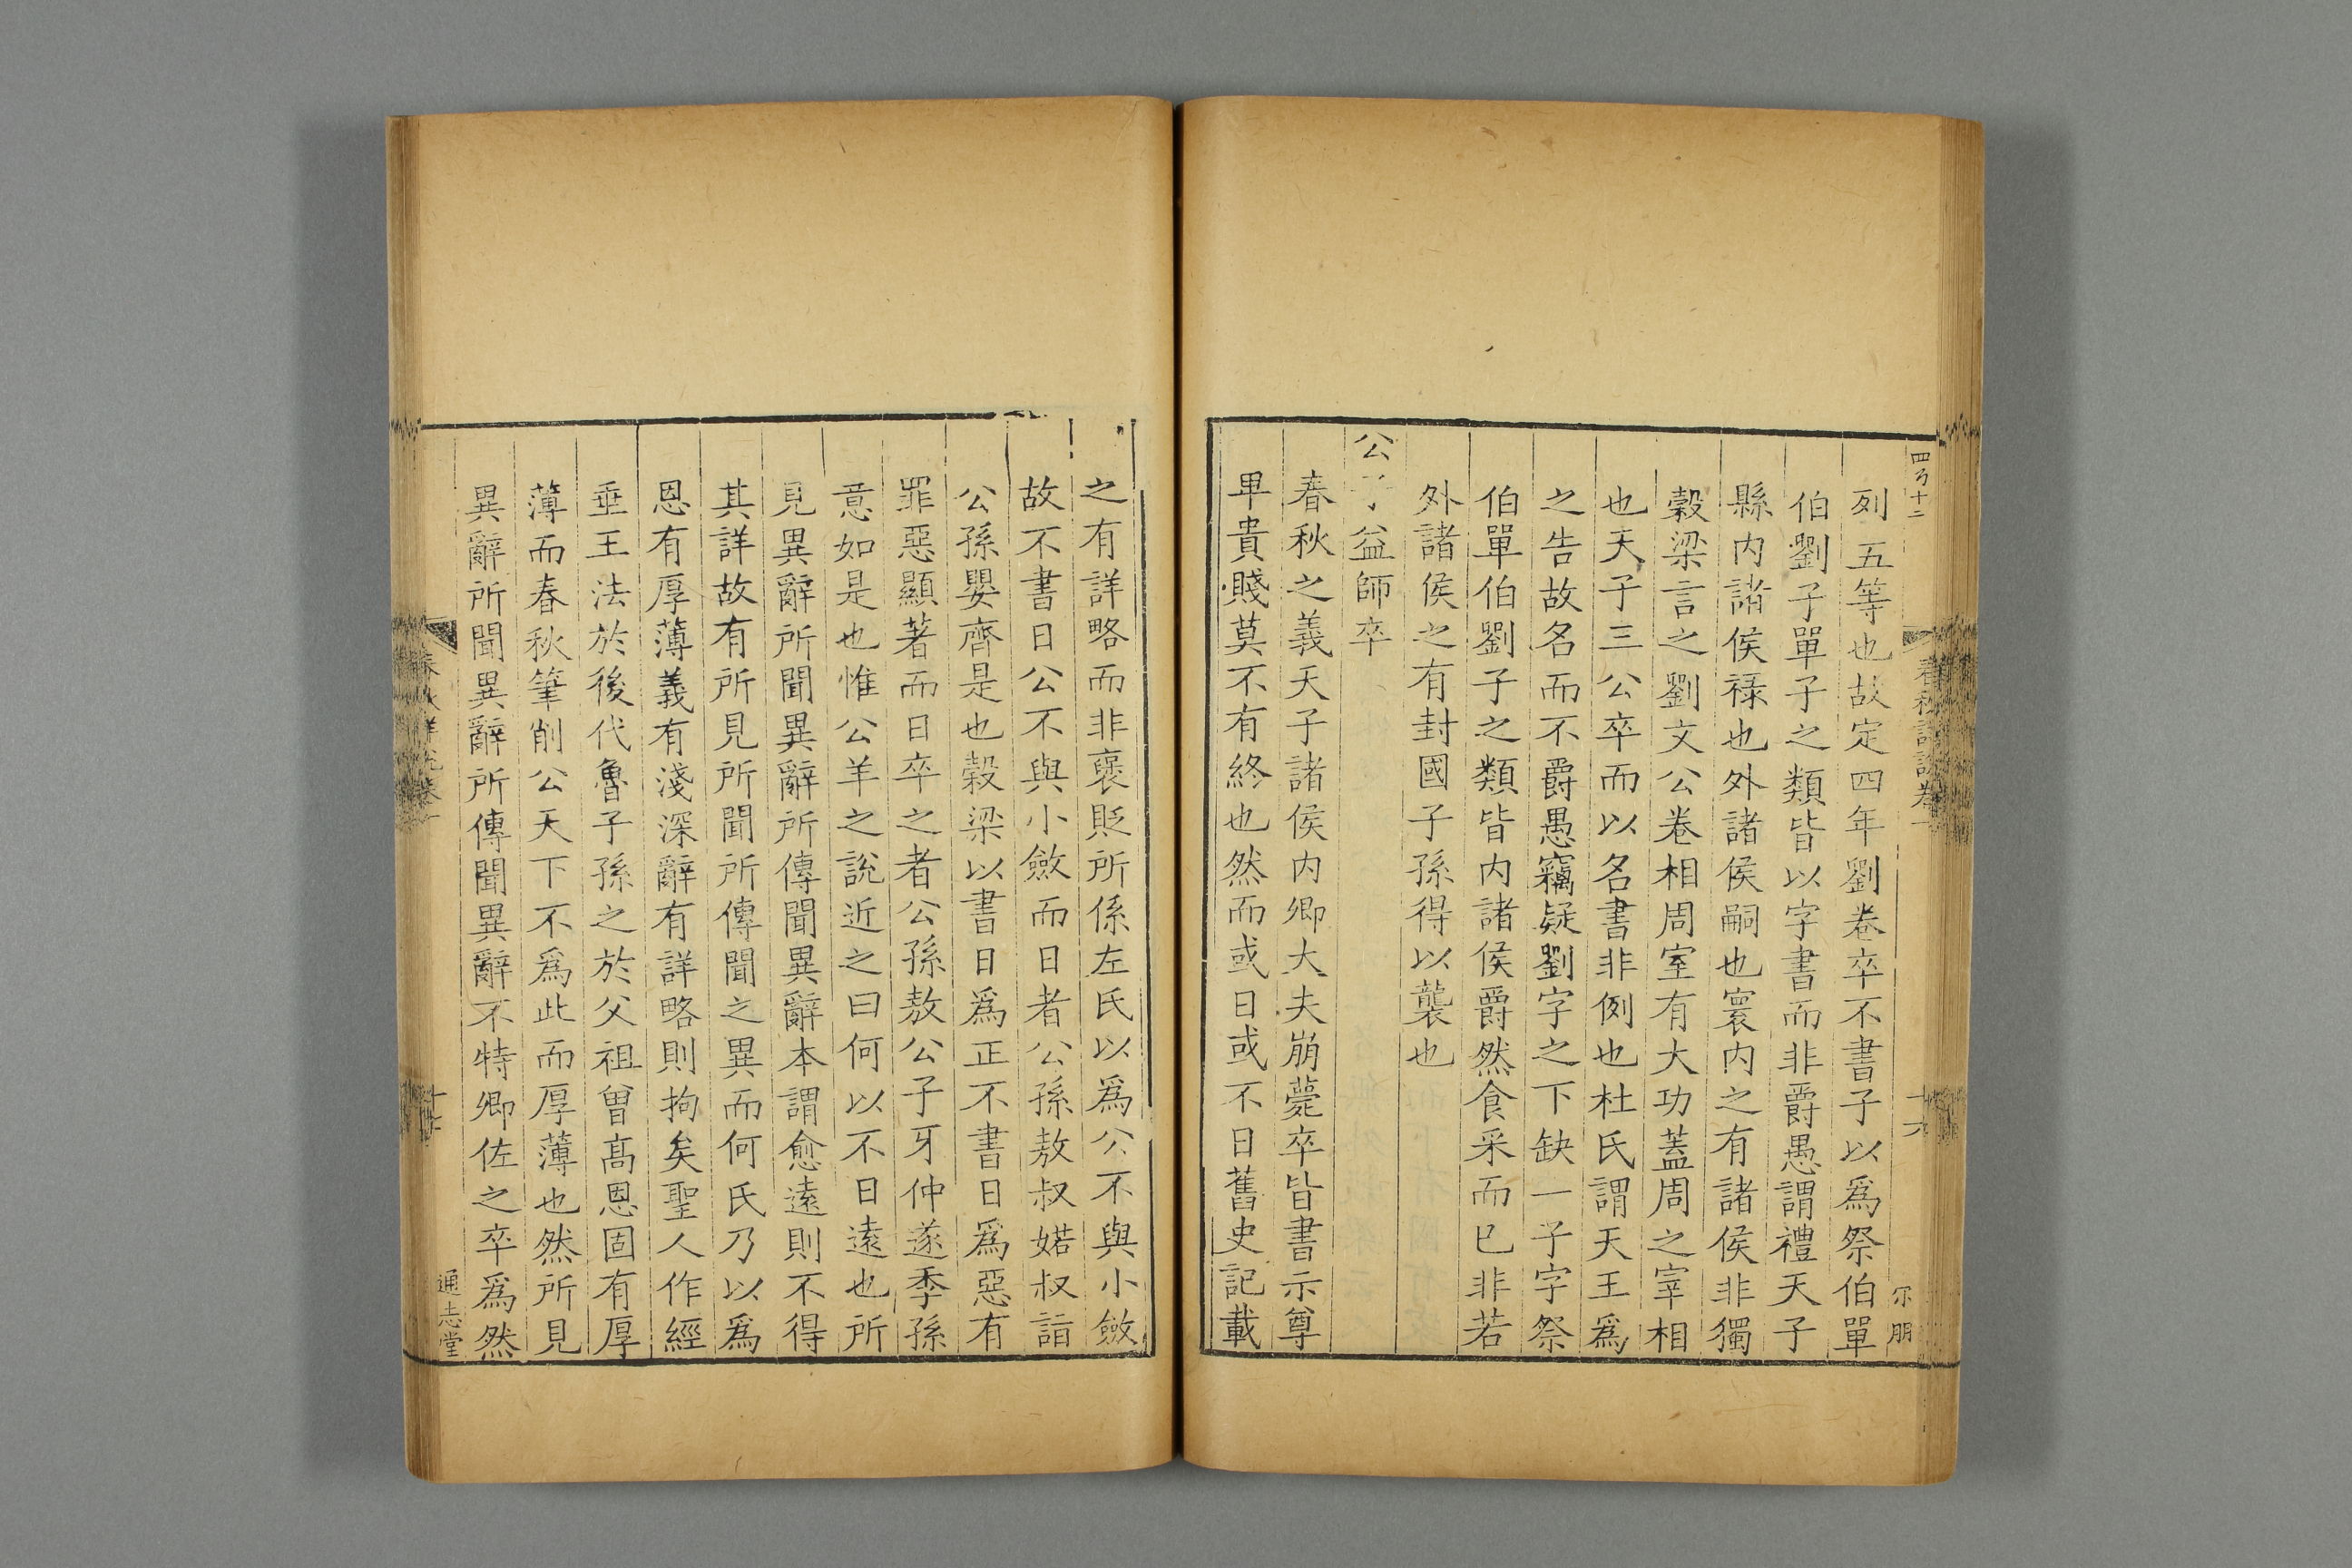 四百十二
春秋詳說卷一
十六
尔朋
列五等也故定四年劉卷卒不書子以為祭伯單
伯劉子單子之類皆以字書而非爵愚謂禮天子
縣内諸侯禄也外諸侯嗣也寰内之有諸侯非獨
穀梁言之劉文公卷相周室有大功蓋周之宰相
也天子三公卒而以名書非例也杜氏謂天王為
之告故名而不爵愚竊疑劉字之下缺一子字祭
伯單伯劉子之類皆内諸侯爵然食采而已非若
外諸侯之有封國子孫得以襲也
公子益師卒
春秋之義天子諸侯内卿大夫崩薨卒皆書示尊
卑貴賤莫不有終也然而或日或不日舊史記載
之有詳略而非褒貶所係左氏以為公不與小斂
故不書日公不與小斂而日者公孫敖叔婼叔詣
公孫嬰齊是也穀梁以書日為正不書日為惡有
罪惡顯著而日卒之者公孫敖公子牙仲遂季孫
意如是也惟公羊之說近之曰何以不日遠也所
見異辭所聞異辭所傳聞異辭本謂愈遠則不得
其詳故有所見所聞所傳聞之異而何氏乃以為
恩有厚薄義有淺深辭有詳略則拘矣聖人作經
垂王法於後代魯子孫之於父祖曾髙恩固有厚
薄而春秋筆削公天下不為此而厚薄也然所見
異辭所聞異辭所傳聞異辭不特卿佐之卒為然
通志堂